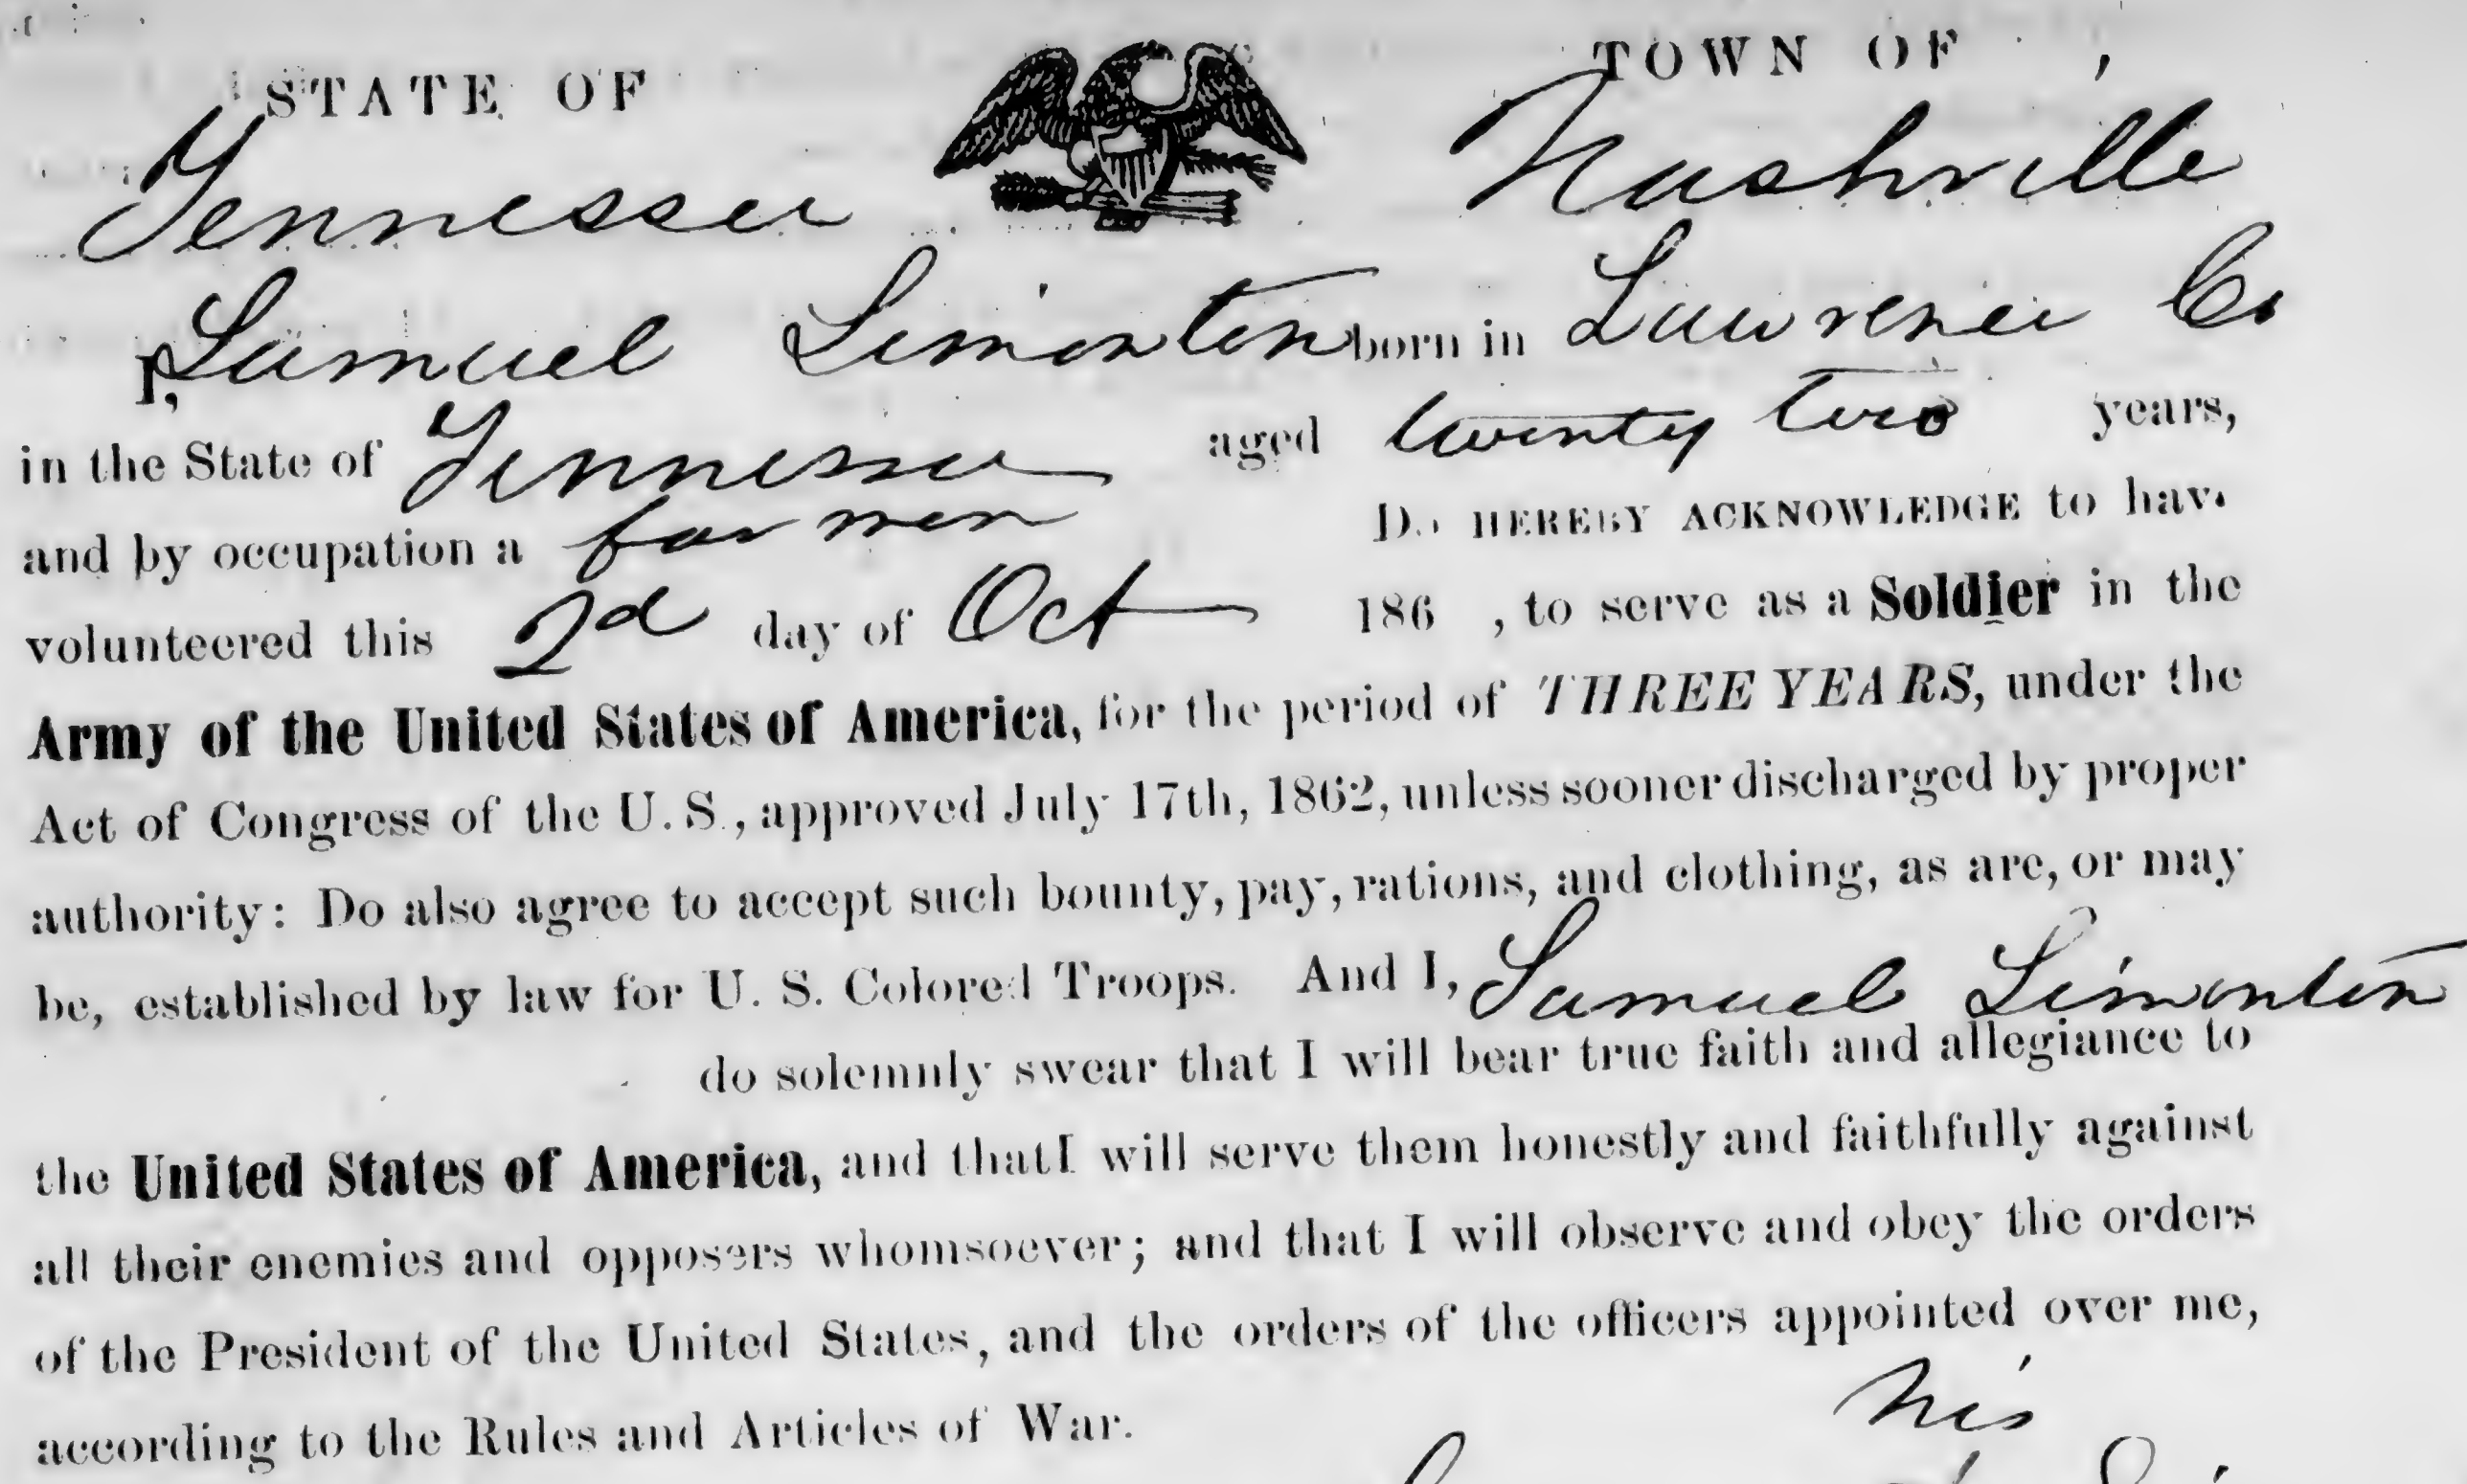 STATE OF TOWN OF
Tennessee Nashville
I, Samuel Simonton born in Lawrence Co
in the State of Tennessee aged twenty two years,
and by occupation a farmer Do HEREBY ACKNOWLEDGE to have
volunteered this 2d day of Oct 186 , to serve as a Soldier in the
Army of the United States of America, for the period of THREE YEARS, under the
Act of Congress of the U. S., approved July 17th, 1862, unless sooner discharged by proper
authority: Do also agree to accept such bounty, pay, rations, and clothing, as are, or may
be, established by law for U. S. Colored Troops. And I, Samuel Simonton
do solemnly swear that I will bear true faith and allegiance to
the United States of America, and that I will serve them honestly and faithfully against
all their enemies and opposers whomsoever; and that I will observe and obey the orders
of the President of the United States, and the orders of the officers appointed over me,
according to the Rules and Articles of War.
his